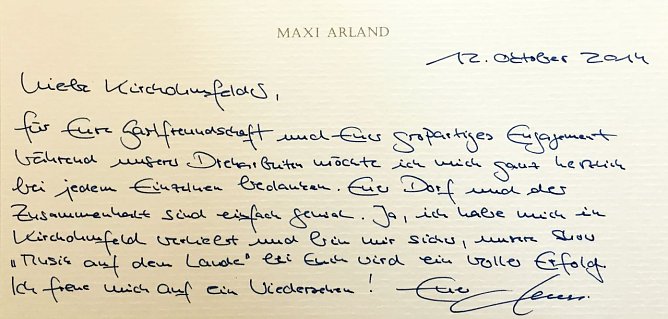 MAXI ARLAND
12. Oktober 2014
Liebe Kirchohmsfelder,
für Eure Gastfreundschaft und Euer großartiges Engagement
während unserer Dreharbeiten möchte ich mich ganz herzlich
bei jedem Einzelnen bedanken. Euer Dorf und der
Zusammenhalt sind einfach genial. Ja, ich habe mich in
Kirchohmsfeld verliebt und bin mir sicher, unsere Show
„Musik auf dem Lande" bei Euch wird ein voller Erfolg.
Ich freue mich auf ein Wiedersehen! Euer